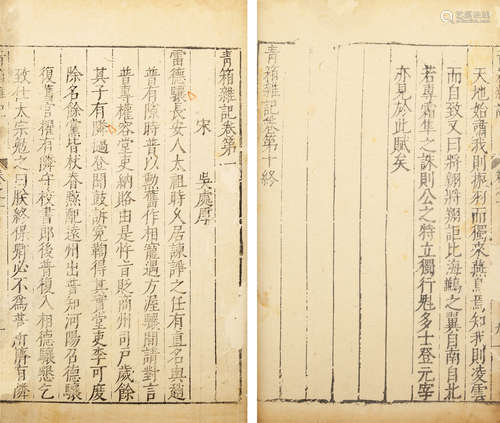 青箱雜記卷第一
宋 吳處厚
雷德驤長安人太祖時久居諫諍之任有直名與趙
普有隙時普以勳舊作相寵遇方渥驤間請對言
普專權容堂吏納賂由是忤旨貶商州司戶歲餘
其子有隣過登聞鼓訴寃鞫得其實堂吏李可度
除名餘黨皆杖脊黥配遠州出普知河陽召德驤
復舊官擢有隣守校書郎後普復入相德驤懇乞
致仕太宗勉之曰朕終保卿必不爲普所擠有隣
天地始肅我則振刷而獨來燕鳥焉知我則凌雲
而自致又曰將翔將翔詎比海鷂之翼自南自北
若專霜隼之誅則公之特立獨行魁多士登元宰
亦見於此賦矣
青箱雜記卷第十終